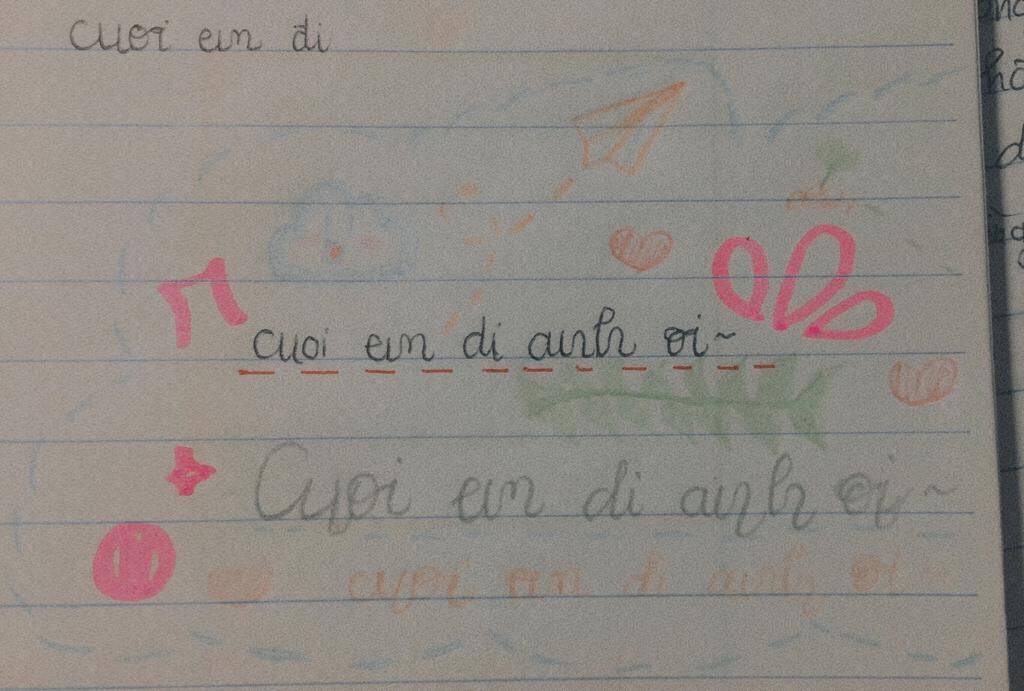 cuoi em di
cuoi em di anh oi~
Cuoi em di anh oi~
cuoi em di anh oi~